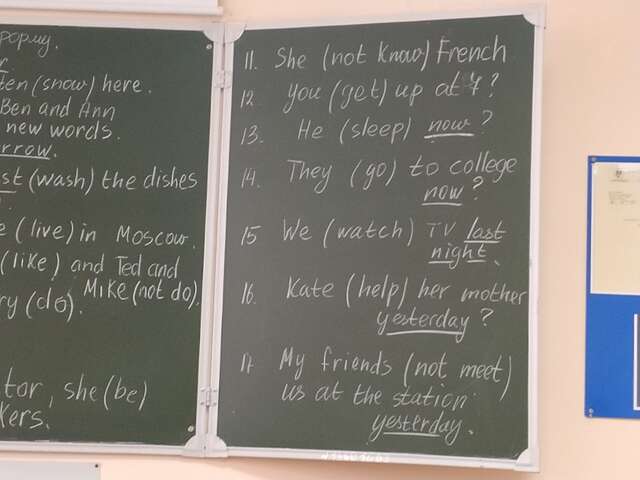 форму.
(snow) here.
Ben and Ann
new words.
(wash) the dishes
(live) in Moscow.
(like) and Ted and
Mike (not do).
(do).
, she (be)
11. She (not know) French
12. you (get) up at 7?
13. He (sleep) now?
14. They (go) to college
now?
15 We (watch) TV last
night.
16. Kate (help) her mother
yesterday?
17 My friends (not meet)
us at the station
yesterday.